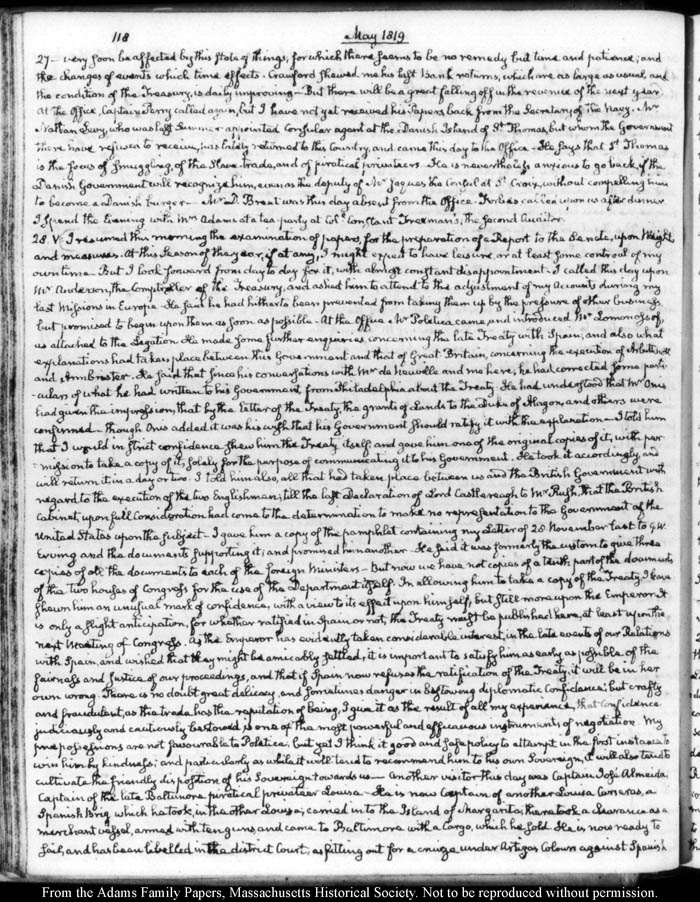 118
May 1819
27 — very soon be affected by this state of things; for which there seems to be no remedy but time and patience; and
the changes of events which time effects. Crawford shewed me his last Bank returns, which are as large as usual, and
the condition of the Treasury, is daily improving — But there will be a great falling off in the revenue of the next year.
At the Office, Captain Perry called again, but I have not yet received his Papers back from the Secretary of the Navy. Mr
Nathan Levy, who was last Summer appointed Consular agent at the Danish Island of St Thomas, but whom the Government
there have refused to receive, has lately returned to this Country, and came this day to the Office. He says that St Thomas
is the focus of smuggling, of the Slave-trade, and of piratical privateers. He is nevertheless anxious to go back, if the
Danish Government will recognize him, even as the deputy of Mr Jaques the Consul at St Croix, without compelling him
to become a Danish burger. Mr D. Brent was this day absent from the Office. Forbes called upon us after dinner
I spend the Evening with Mrs Adams at a tea-party at Colo Constant Freeman's, the Second Auditor.
28. V. I resumed this morning the examination of papers, for the preparation of a Report to the Senate, upon Weights
and measures. At this Season of the year, if at any, I might expect to have leisure, or at least some controul of my
own time. But I look forward from day to day for it, with almost constant disappointment. I called this day upon
Mr Anderson, the Comptroller of the Treasury, and asked him to attend to the adjustment of my Accounts during my
last Missions in Europe. He said he had hitherto been prevented from taking them up by the pressure of other business
but promised to begin upon them as soon as possible. At the Office Mr Poletica came and introduced Mr Lomonosoff,
as attached to the Legation. He made some further enquiries, concerning the late Treaty with Spain; and also what
explanations had taken place between this Government and that of Great-Britain, concerning the execution of Arbuthnot
and Ambrister. He said that since his conversations with Mr de Neuville and me here, he had corrected some parti-
culars of what he had written to his Government, from Philadelphia about the Treaty. He had understood that Mr Onis
had given the impression, that by the letter of the Treaty, the grants of Lands to the Duke of Alagon, and others were
confirmed — though Onis added it was his wish that his Government should ratify it with the explanation — I told him
that I would in strict confidence shew him the Treaty itself and gave him one of the original copies of it, with per-
mission to take a copy of it, solely for the purpose of communicating it to his Government. He took it accordingly, and
will return it in a day or two. I told him also, all that had taken place between us and the British Government with
regard to the execution of the two Englishmen; till the last declaration of Lord Castlereagh to Mr Rush, that the British
Cabinet, upon full Consideration had come to the determination to make no representation to the Government of the
United States upon the subject — I gave him a copy of the pamphlet containing my Letter of 28 November last to G. W.
Erving and the documents supporting it; and promised him another. He said it was formerly the custom to give three
copies of all the documents to each of the foreign Ministers — But now we have not copies of a tenth part of the documents
of the two houses of Congress for the use of the Department itself. In allowing him to take a copy of the Treaty, I have
shewn him an unusual mark of confidence, with a view to its effect upon himself, but still more upon the Emperor. It
is only a slight anticipation, for whether ratified in Spain or not, the Treaty must be published here, at least upon the
next Meeting of Congress. As the Emperor has evidently taken considerable interest, in the late events of our Relations
with Spain, and wished that they might be amicably settled, it is important to satisfy him as early as possible of the
fairness and Justice of our proceedings, and that if Spain now refuses the ratification of the Treaty, it will be in her
own wrong. There is no doubt great delicacy, and sometimes danger in bestowing diplomatic Confidence; but crafty
and fraudulent, as the trade has the reputation of being, I give it as the result of all my experience, that confidence
judiciously and cautiously bestowed is one of the most powerful and efficacious instruments of negotiation. My
prepossessions are not favourable to Poletica; but yet I think it good and safe policy to attempt in the first instance to
win him by kindness; and particularly as while it will tend to recommend him to his own Sovereign, it will also tend to
cultivate the friendly disposition of his Sovereign towards us — Another visitor this day was Captain José Almeida
Captain of the late Baltimore piratical privateer Louisa. He is now Captain of another Louisa Carreras, a
Spanish Brig which he took, in the other Louisa; carried in to the Island of Margarita; there took a clearance as a
merchant vessel, armed with ten guns and came to Baltimore with a Cargo, which he sold. He is now ready to
sail, and has been libelled in the district Court, as fitting out for a cruize under Artigas Colours against Spanish
From the Adams Family Papers, Massachusetts Historical Society. Not to be reproduced without permission.